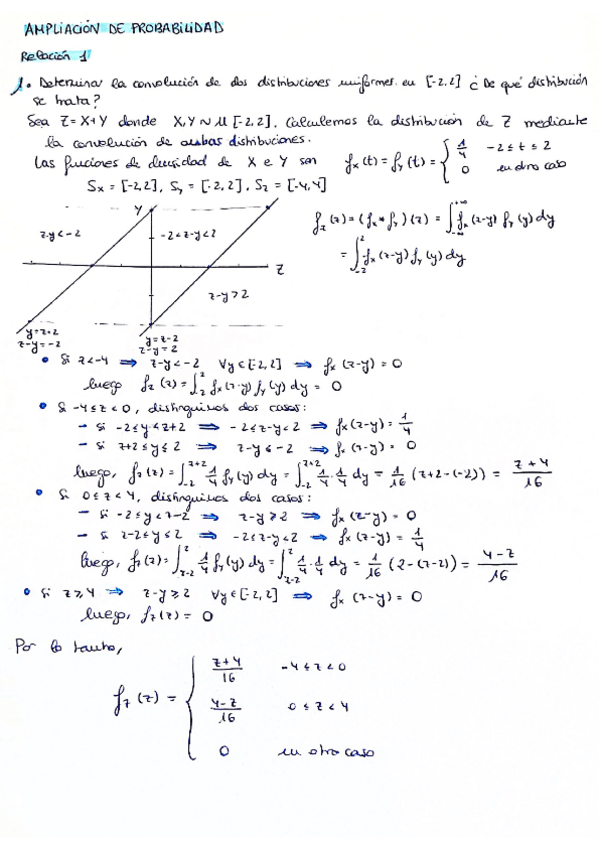 AMPLIACIÓN DE PROBABILIDAD
Relación 1
1. Determinar la convolución de dos distribuciones uniformes en [-2,2] ¿De qué distribución
se trata?
Sea Z=X+Y donde X,Y ~ U[-2,2]. Calculemos la distribución de Z mediante
la convolución de ambas distribuciones.
Las funciones de densidad de X e Y son f_x(t) = f_y(t) = { 1/4 -2≤t≤2
0 en otro caso
S_x = [-2,2], S_y = [-2,2], S_z = [-4,4]
Y
z-y<-2
-2<z-y<2
Z
z-y>2
y=z+2
z-y=-2
y=z-2
z-y=2
f_z(z) = (f_x * f_y)(z) = ∫_{-∞}^{+∞} f_x(z-y) f_y(y) dy
= ∫_{-2}^{2} f_x(z-y) f_y(y) dy
• Si z<-4 ⟹ z-y<-2 ∀y∈[-2,2] ⟹ f_x(z-y) = 0
luego f_z(z) = ∫_{-2}^{2} f_x(z-y) f_y(y) dy = 0
• Si -4≤z<0, distinguimos dos casos:
- Si -2≤y<z+2 ⟹ -2≤z-y<2 ⟹ f_x(z-y) = 1/4
- Si z+2≤y≤2 ⟹ z-y≤-2 ⟹ f_x(z-y) = 0
luego, f_z(z) = ∫_{-2}^{z+2} 1/4 f_y(y) dy = ∫_{-2}^{z+2} 1/4 · 1/4 dy = 1/16 (z+2-(-2)) = (z+4)/16
• Si 0≤z<4, distinguimos dos casos:
- Si -2≤y<z-2 ⟹ z-y≥2 ⟹ f_x(z-y) = 0
- Si z-2≤y≤2 ⟹ -2≤z-y<2 ⟹ f_x(z-y) = 1/4
luego, f_z(z) = ∫_{z-2}^{2} 1/4 f_y(y) dy = ∫_{z-2}^{2} 1/4 · 1/4 dy = 1/16 (2-(z-2)) = (4-z)/16
• Si z≥4 ⟹ z-y≥2 ∀y∈[-2,2] ⟹ f_x(z-y) = 0
luego, f_z(z) = 0
Por lo tanto,
f_z(z) = { (z+4)/16 -4≤z<0
(4-z)/16 0≤z<4
0 en otro caso